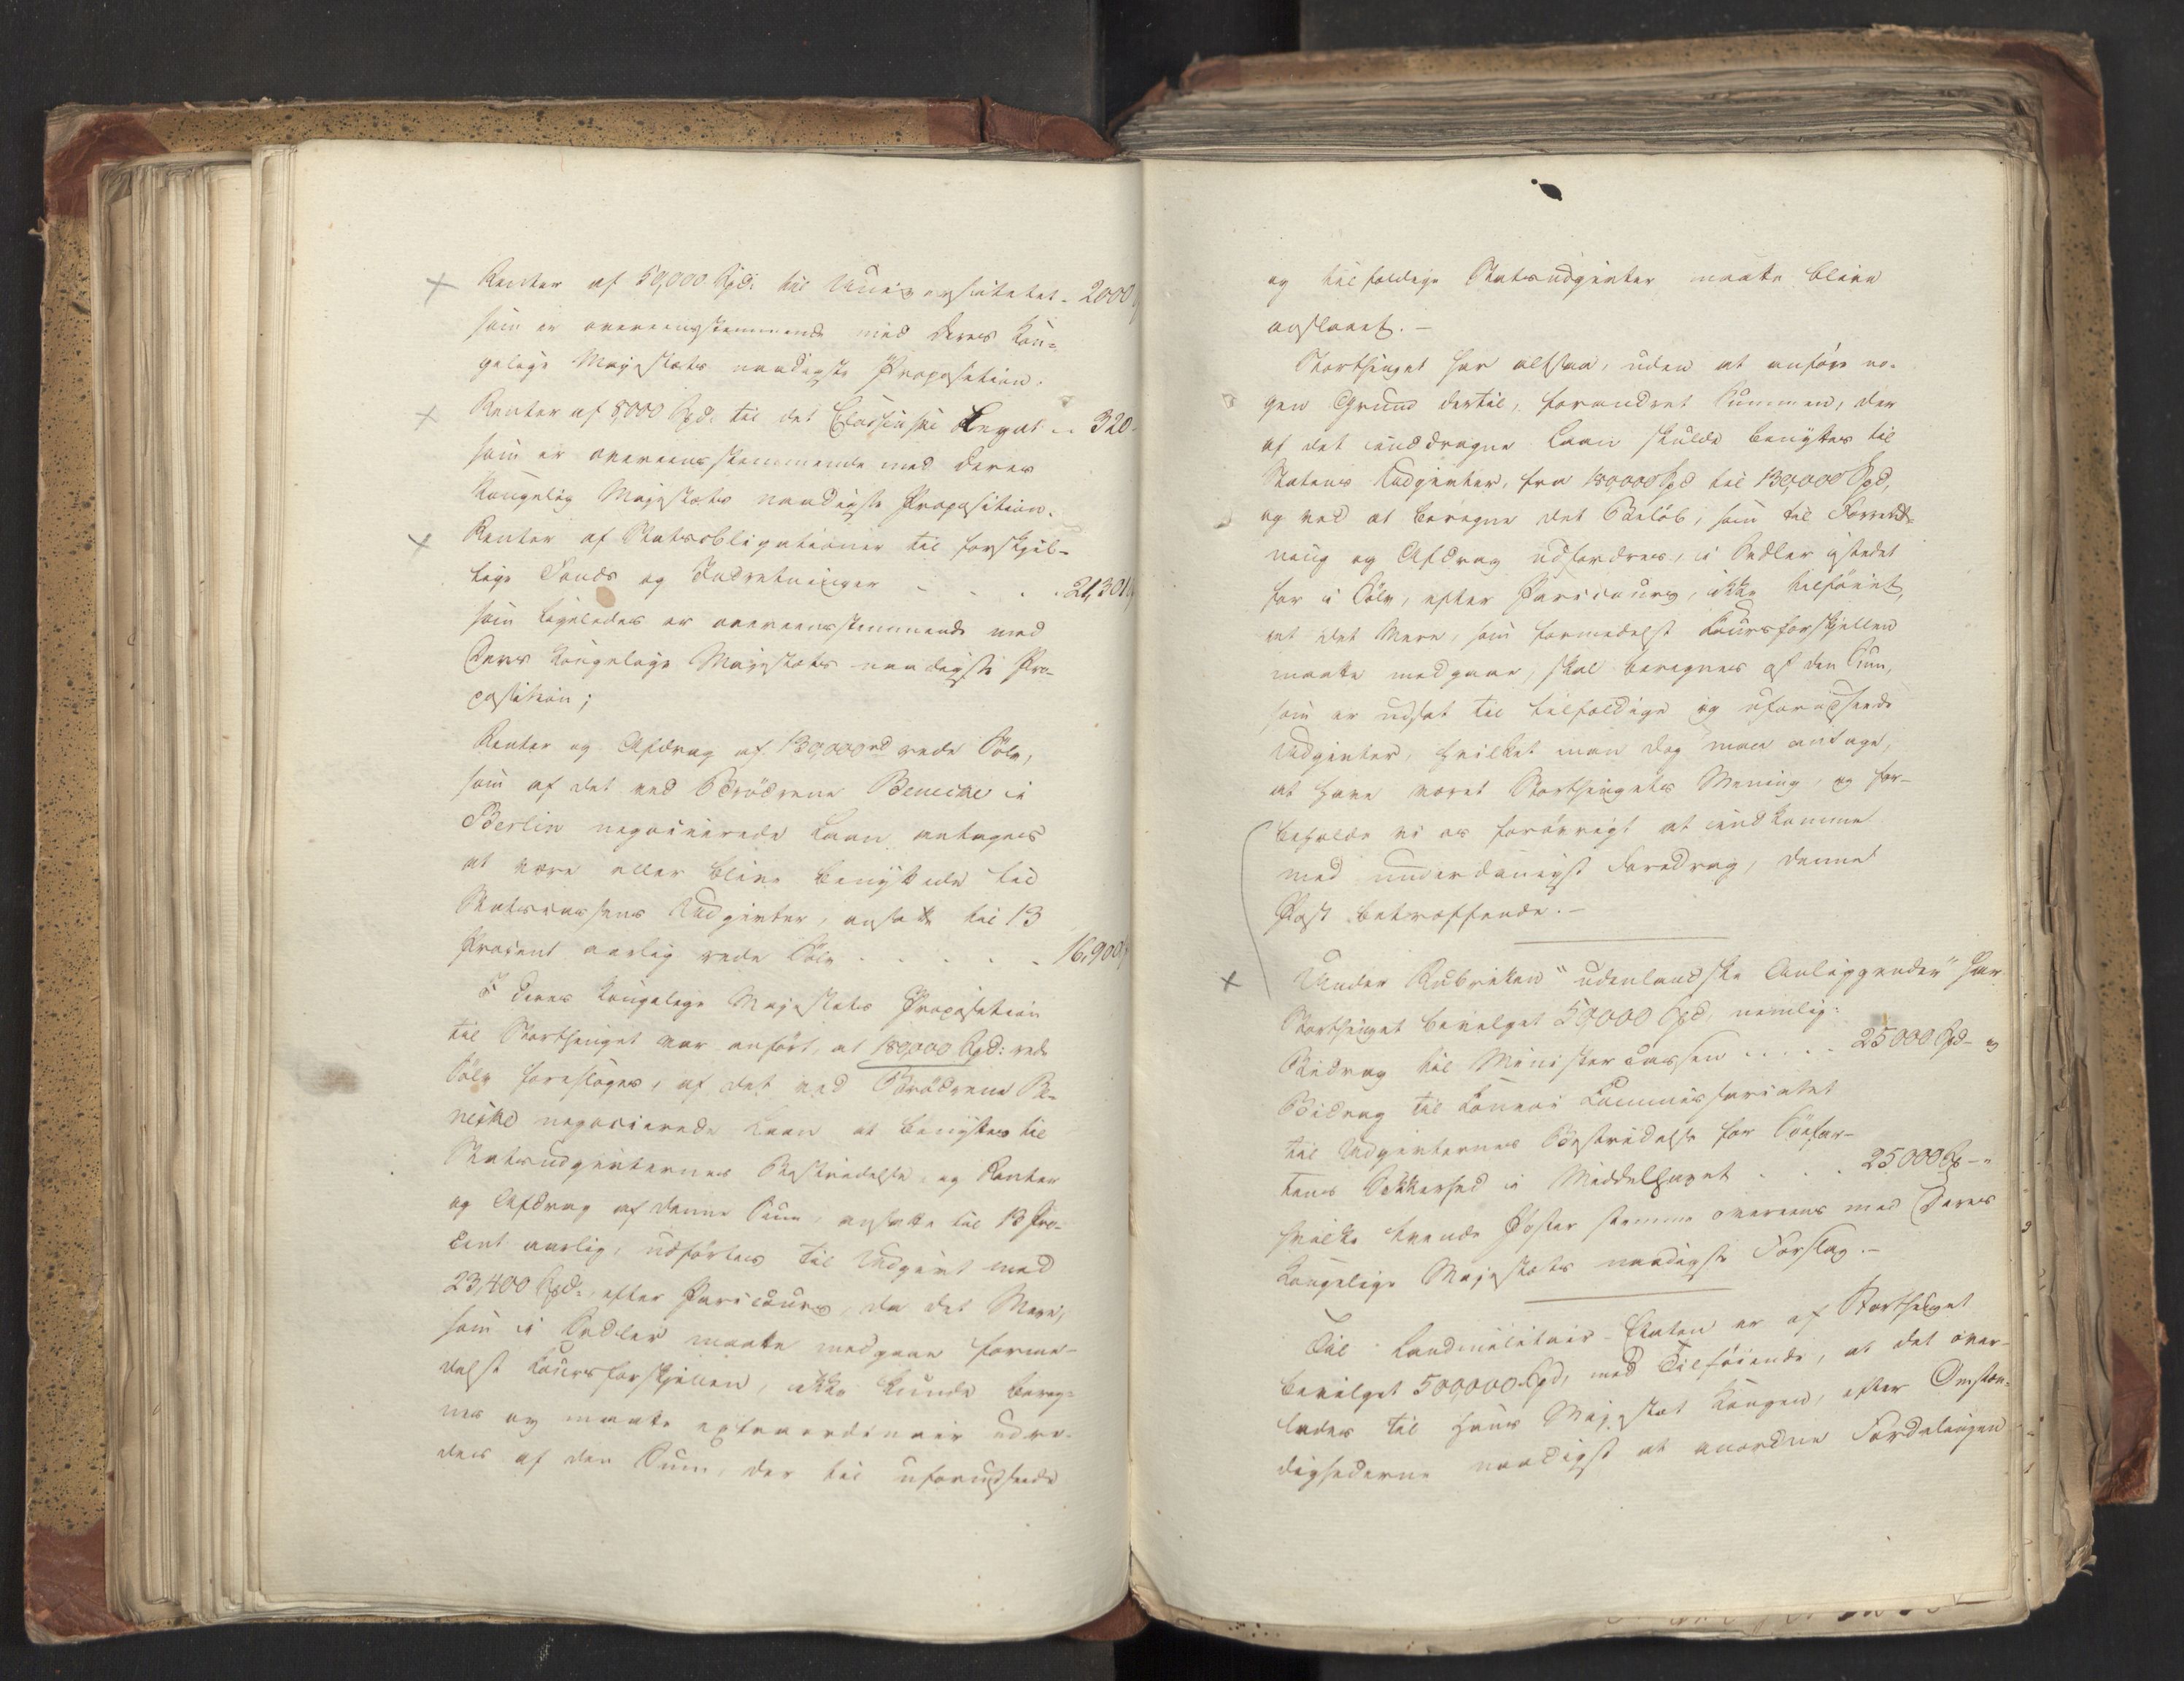 Renter af 50,000 Spd: til Universitetet - 2000
som er overeensstemmende med Deres Kon-
gelige Majestæts naadigste Proposition.
Renter af 8000 Spd: til det Classenske Legat .. 320
som er overeensstemmende med Deres
Kongelig Majestæts naadigste Proposition.
Renter af Statsobligationer til forskjel-
lige Fonds og Indretninger - - . . 21,301
som ligeledes er overeensstemmende med
Deres Kongelige Majestæts naadigste Pro-
position;
Renter og Afdrag af 130,000 rede Sölv,
som af det ved Brödrene Benecke i
Berlin negocierede Laan antages
at være eller blive benyttede til
Statscassens Udgivter, ansatte til 13
Procent aarlig rede Sölv - - - - - 16,900
I Deres Kongelige Majestæts Proposition
til Storthinget var anfört, at 180,000 Spd: rede
Sölv foresloges, af det ved Brödrene Be-
necke negocierede Laan at benyttes til
Statsudgivternes Bestridelse, og Renter
og Afdrag af denne Sum, ansatte til 13 Pro-
cent aarlig, udförtes til Udgivt med
23,400 Spd:, efter Paricours, da det Mere,
som i Sedler maatte medgaae forme-
delst Coursforskjellen, ikke kunde bereg-
nes og maatte extraordinair udre-
des af den Sum, der til uforudseede
og tilfældige Statsudgivter maatte blive
anslaaet. -
Storthinget har altsaa, uden at anföre no-
gen Grund dertil, forandret Summen, der
af det inddragne Laan skulde benyttes til
Statens Udgivter, fra 180,000 Spd til 130,000 Spd,
og ved at beregne det Belöb, som til Forrent-
ning og Afdrag udfordres, i Sedler istedet
for i Sölv, efter Paricours, ikke tilföiet,
at det Mere, som formedelst Coursforskjellen
maatte medgaae, skal beregnes af den Sum,
som er udsat til tilfældige og uforudseede
Udgivter, hvilket man dog maa antage,
at have været Storthingets Mening, og for-
beholde vi os forövrigt at indkomme
med underdanigst Foredrag, denne
Post betræffende. -
Under Rubriken "udenlandske Anliggender" har
Storthinget bevilget 50,000 Spd, nemlig:
Bidrag til Ministercassen . . . . . 25000 Spd - "
Bidrag til Convoi Commissariatet
til Udgivternes Bestridelse for Söefar-
tens Sikkerhed i Middelhavet . . . 25000 Sp - "
hvilke tvende Poster stemme overeens med Deres
Kongelige Majestæts naadigste Forslag. -
Til Landmilitair-Etaten er af Storthinget
bevilget 500,000 Spd, med Tilföiende, at det over-
lades til Hans Majestæt Kongen, efter Omstæn-
dighederne naadigst at anordne Fordelingen